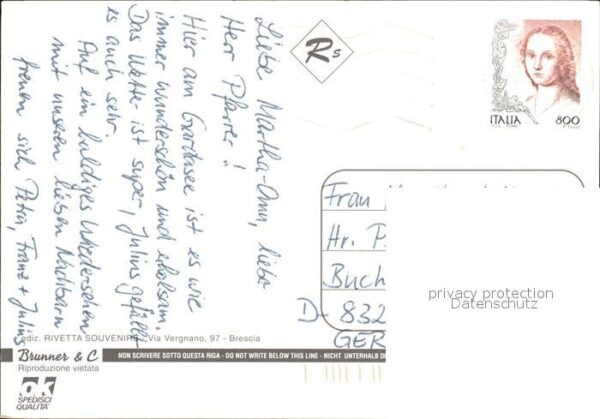 Liebe Martha-Oma, liebe
Herr Pfarrer!!
Hier am Gardasee ist es wie
immer wunderschön und erholsam.
Das Wetter ist super, Julius gefällt
es auch sehr.
Auf ein baldiges Wiedersehen
mit unseren lieben Nachbarn
freuen sich Petra, Franz + Julius
Rs
ITALIA 800
Frau
Hr. P
Buch
D- 832
GER
privacy protection
Datenschutz
ediz. RIVETTA SOUVENIRS - Via Vergnano, 97 - Brescia
Brunner & C
NON SCRIVERE SOTTO QUESTA RIGA - DO NOT WRITE BELOW THIS LINE - NICHT UNTERHALB DI
Riproduzione vietata
ok
SPEDISCI
QUALITA'